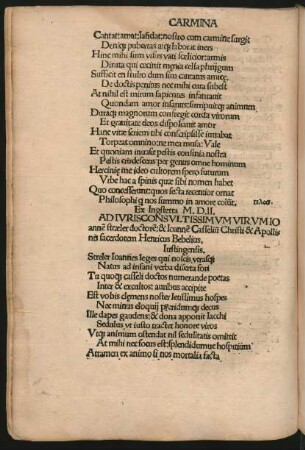 CARMINA
Cantat: amat: lasciuit: nostro cum carmine surgit
Deniq; pubertas arq; labor at iners
Hinc mihi sum visus vati scelicior: armis
Dirata qui cecinit regna celsa phrigum
Sufficit en studio dum sim carratus amiceq.
De doctis penitus nec mihi cura subest
At nihil est mirum sapientes infatuarit
Quondam amor insanire: sampsitq; animum
Duraq; magnorum confregit corda virorum
Et grauitate deos dispoliauit amor
Hunc vitae seriem tibi conscripsisse iuuabat
Torpeat omnino: ne mea musa: Vale
Et quoniam inuasit pestis confinia nostra
Pestis crudescens per genus omne hominum
Hercinie me ideo cultorem spero futurum
Vrbe hac a spinis quae sibi nomen habet
Quo concesserunt quos secta recentior ornat
Philosophi q; nos summo in amore colūt, τελοσ.
Ex Ingsterta M. D. II.
AD IVRISCONSVLTISSIMVM VIRVM IO
annē streler doctorē: & Ioannē Casseliū Christi & Apollis
nis sacerdotem Henricus Bebelius,
Iustingensis.
Streler Ioannes leges qui noscis, verasq;
Natus ad insani verba diserta fori
Tu quoq; casseli doctos numerande poetas
Inter & excultos: auribus accipite
Est vobis clemens noster letissimus hospes
Nec minus eloquij prouidemus decus
Ille dapes gaudens: & dona apponit Iacchi
Sedulus vt iusto tractet honore viros
Vtq; animum ostendat nil sedulitatis omittit
At mihi nec focus est: splendidumue hospitium
Attamen ex animo si nos mortalia facta